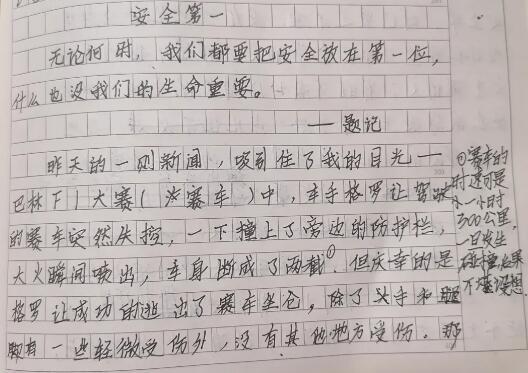 安全第一
无论何时，我们都要把安全放在第一位，
什么也没我们的生命重要。
——题记
昨天的一则新闻，吸引住了我的目光——
巴林F1大赛（汽赛车）中，车手格罗让驾驶
的赛车突然失控，一下撞上了旁边的防护栏，
大火瞬间喷出，车身断成了两截①。但庆幸的是
格罗让成功的逃出了赛车坐仓，除了头手和腿
脚有一些轻微受伤外，没有其他地方受伤。那
①赛车的
时速可是
一小时
300公里，
一旦发生
碰撞，后果
不堪设想